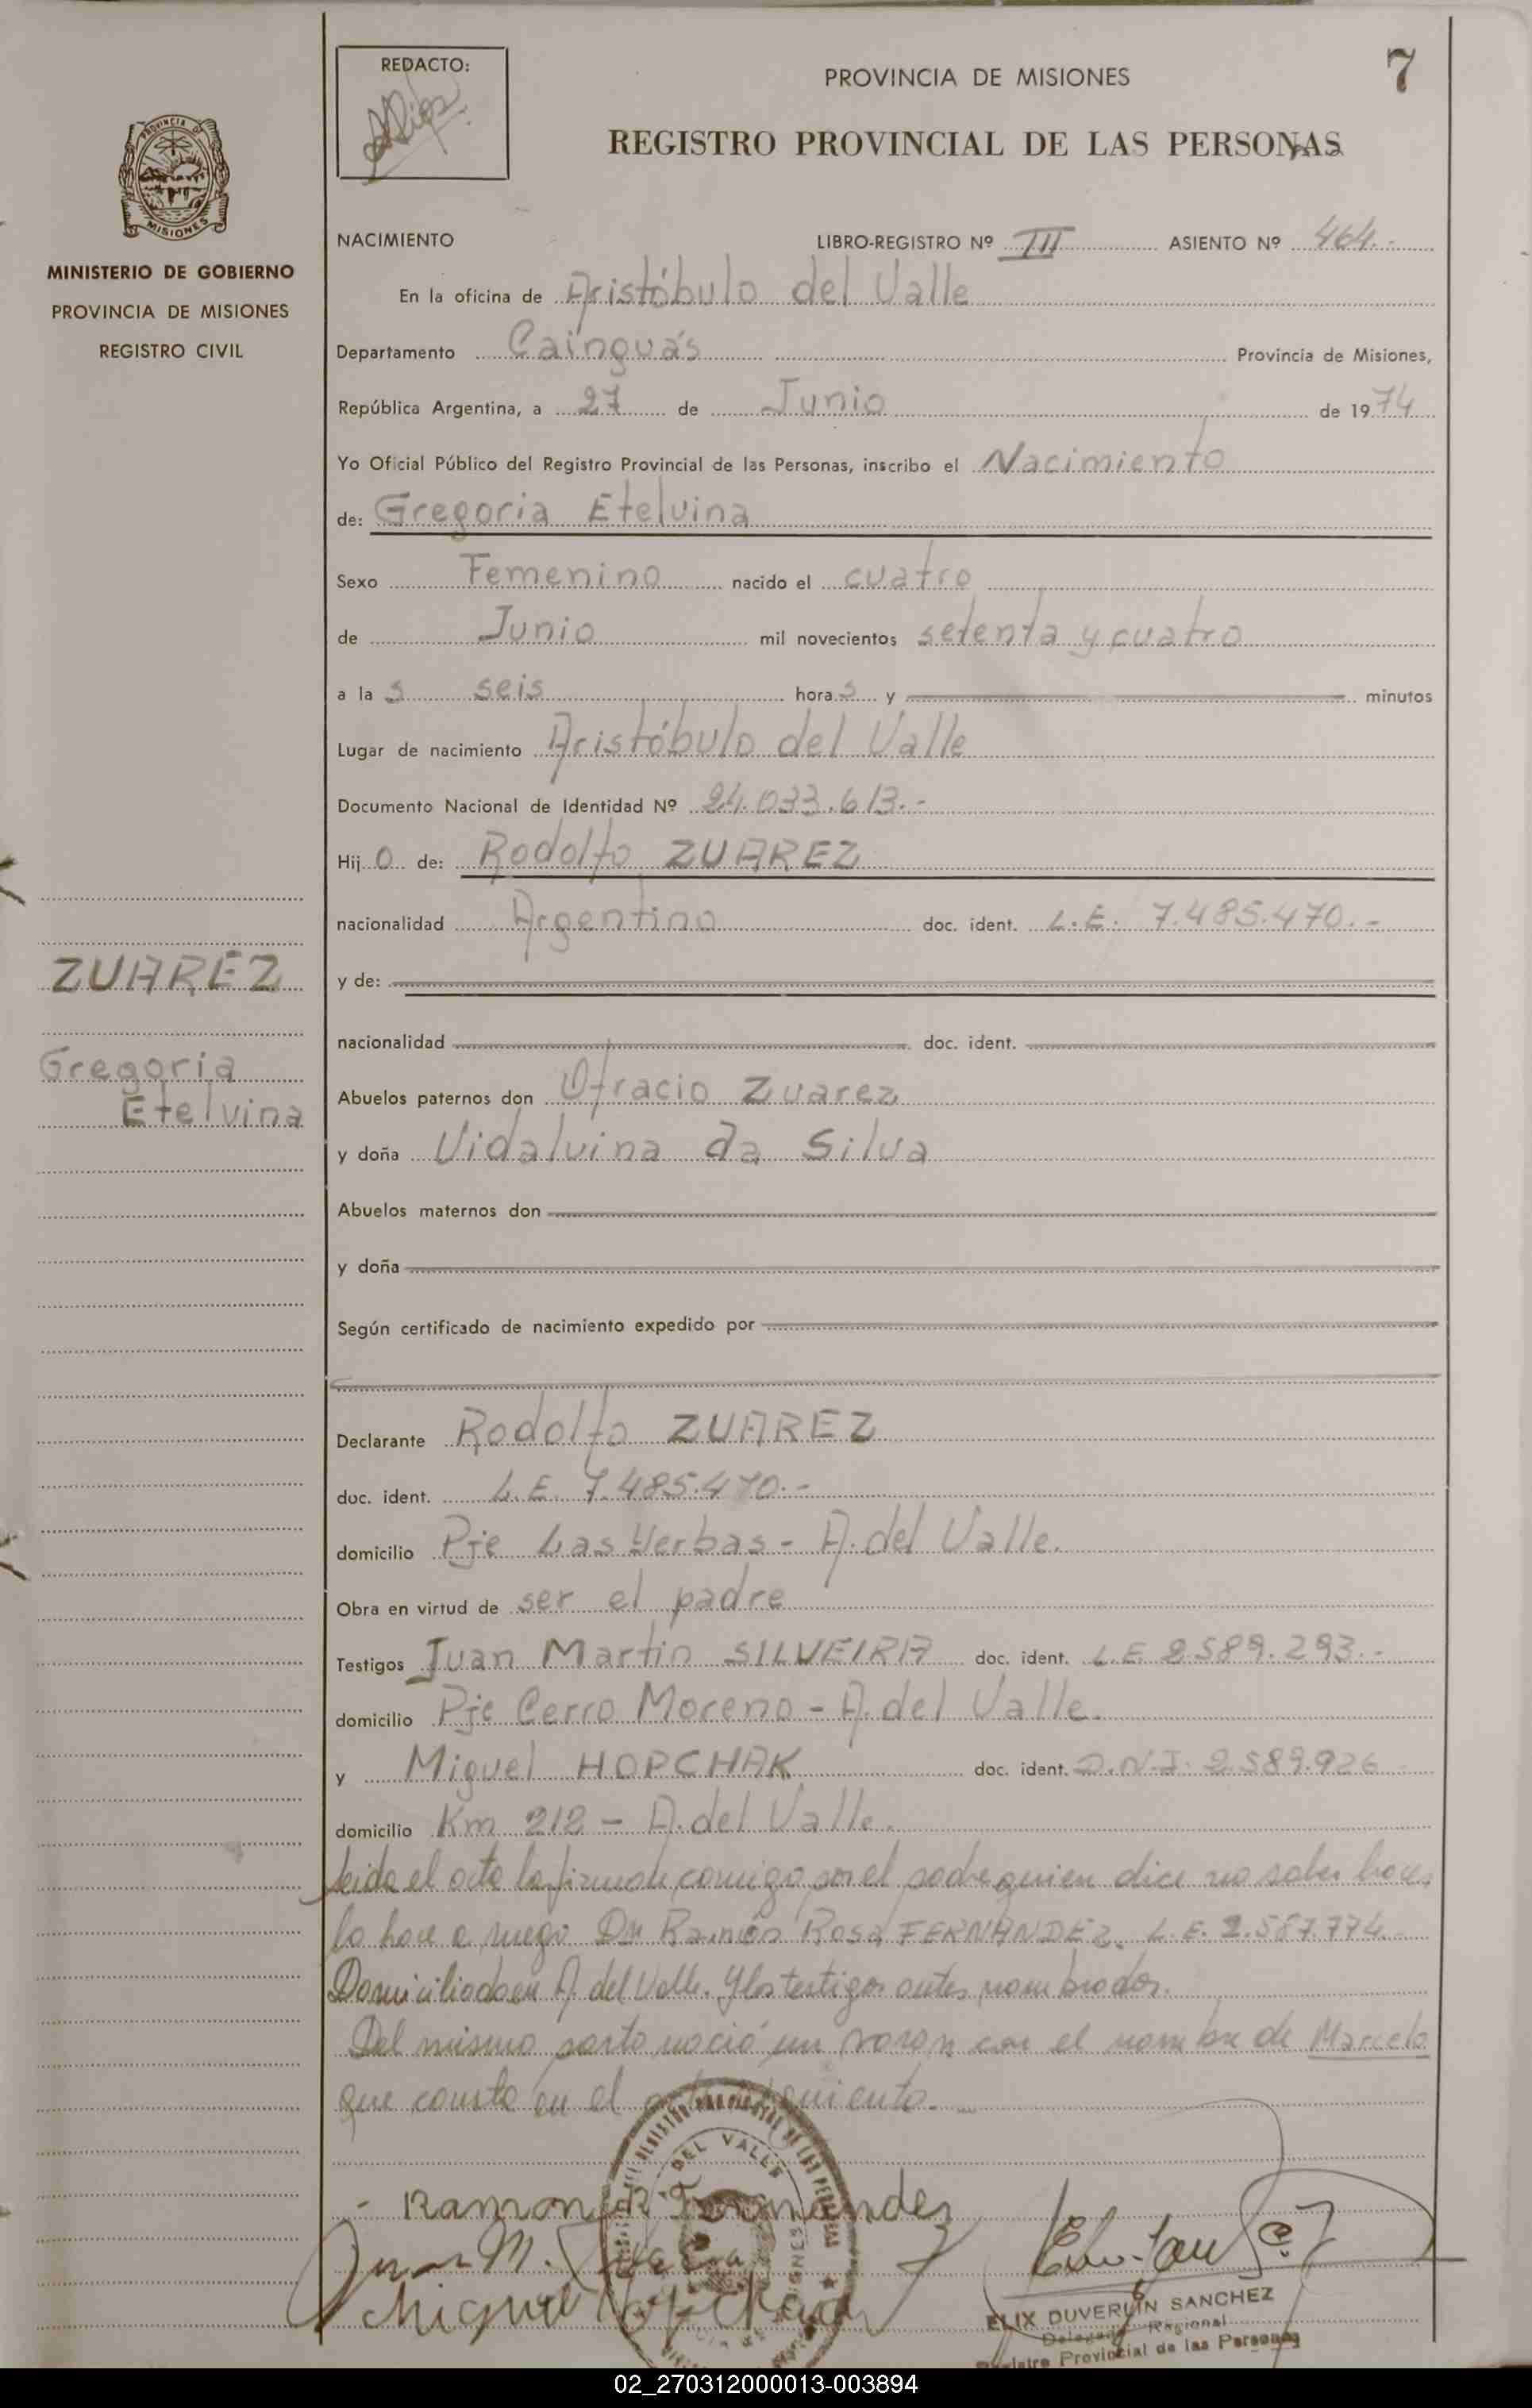 REDACTO:
PROVINCIA DE MISIONES
7
REGISTRO PROVINCIAL DE LAS PERSONAS
PROVINCIA DE
MISIONES
MINISTERIO DE GOBIERNO
PROVINCIA DE MISIONES
REGISTRO CIVIL
NACIMIENTO LIBRO-REGISTRO Nº III ASIENTO Nº 464.-
En la oficina de Aristóbulo del Valle
Departamento Cainguás Provincia de Misiones,
República Argentina, a 27 de Junio de 1974
Yo Oficial Público del Registro Provincial de las Personas, inscribo el Nacimiento
de: Gregoria Etelvina
Sexo Femenino nacido el cuatro
de Junio mil novecientos setenta y cuatro
a la s seis hora s y minutos
Lugar de nacimiento Aristóbulo del Valle
Documento Nacional de Identidad Nº 24.033.613.-
Hij o de: Rodolfo ZUAREZ
nacionalidad Argentino doc. ident. L.E. 7.485.470.-
y de:
nacionalidad doc. ident.
ZUAREZ
Gregoria
Etelvina
Abuelos paternos don Ofracio Zuarez
y doña Vidalvina da Silva
Abuelos maternos don
y doña
Según certificado de nacimiento expedido por
Declarante Rodolfo ZUAREZ
doc. ident. L.E. 7.485.470.-
domicilio Pje Las Yerbas - A. del Valle.
Obra en virtud de ser el padre
Testigos Juan Martin SILVEIRA doc. ident. L.E. 8.589.293.-
domicilio Pje Cerro Moreno - A. del Valle.
y Miguel HOPCHAK doc. ident. D.N.I. 2.589.926
domicilio Km 212 - A. del Valle.
Leida el acta la firmada conmigo por el padre quien dice no saber hacer
lo hace a ruego Dn Ramón Rosa FERNANDEZ. L.E. 2.587.774.-
Domiciliado en A. del Valle. Y los testigos antes nombrados.
Del mismo parto nació un varon con el nombre de Marcelo
que consta en el acta siguiente.
DEL VALLE
- Ramon R. Fernandez
Juan M. Silveira
Miguel Hopchak
ELIX DUVERLIN SANCHEZ
Delegado Regional
Registro Provincial de las Personas
02_270312000013-003894